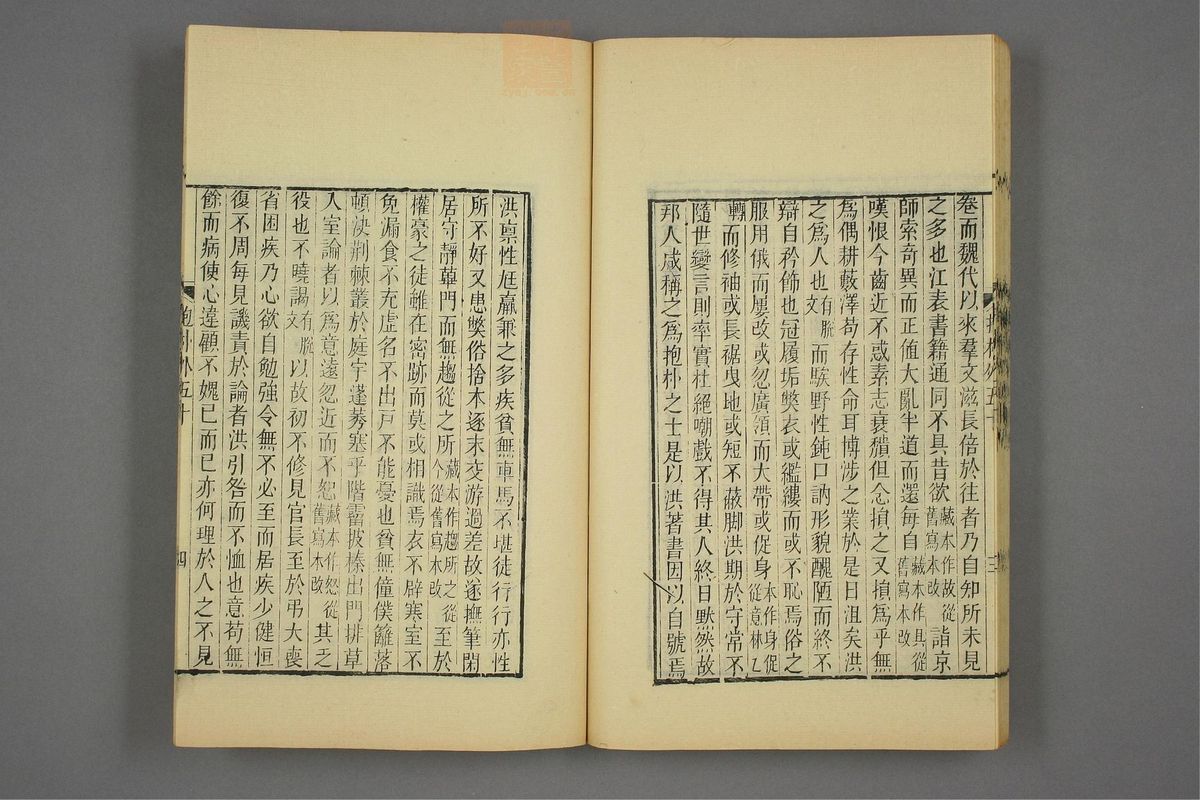 卷而魏代以來羣文滋長倍於往者乃自知所未見
之多也江表書籍通同不具昔欲藏本作故從舊寫本改諸京
師索奇異而正值大亂半道而還每自藏本作具從舊寫本改
嘆恨今齒近不惑素志衰穨但念損之又損爲乎無
爲偶耕藪澤苟存性命耳博涉之業於是日沮矣洪
之爲人也有脫文而騃野性鈍口訥形貌醜陋而終不
辯自矜飾也冠履垢弊衣或繿縷而或不恥焉俗之
服用俄而屢改或忽廣領而大帶或促身本作身促從意林乙
轉而修袖或長裾曳地或短不蔽脚洪期於守常不
隨世變言則率實杜絕嘲戲不得其人終日默然故
邦人咸稱之爲抱朴之士是以洪著書因以自號焉
洪禀性尫羸兼之多疾貧無車馬不堪徒行行亦性
所不好又患弊俗捨本逐末交游過差故遂撫筆閑
居守靜蓽門而無趨從之所藏本作趨所之從今從舊寫本改至於
權豪之徒雖在密跡而莫或相識焉衣不辟寒室不
免漏食不充虛名不出戸不能憂也貧無僮僕籬落
頓決荆棘叢於庭宇蓬莠塞乎階霤披榛出門排草
入室論者以爲意遠忽近而不恕藏本作怒從舊寫本改其乏
役也不曉謁有脫文以故初不修見官長至於弔大喪
省困疾乃心欲自勉強令無不必至而居疾少健恒
復不周每見譏責於論者洪引咎而不恤也意苟無
餘而病使心違顧不媿已而已亦何理於人之不見
抱朴外五十
四